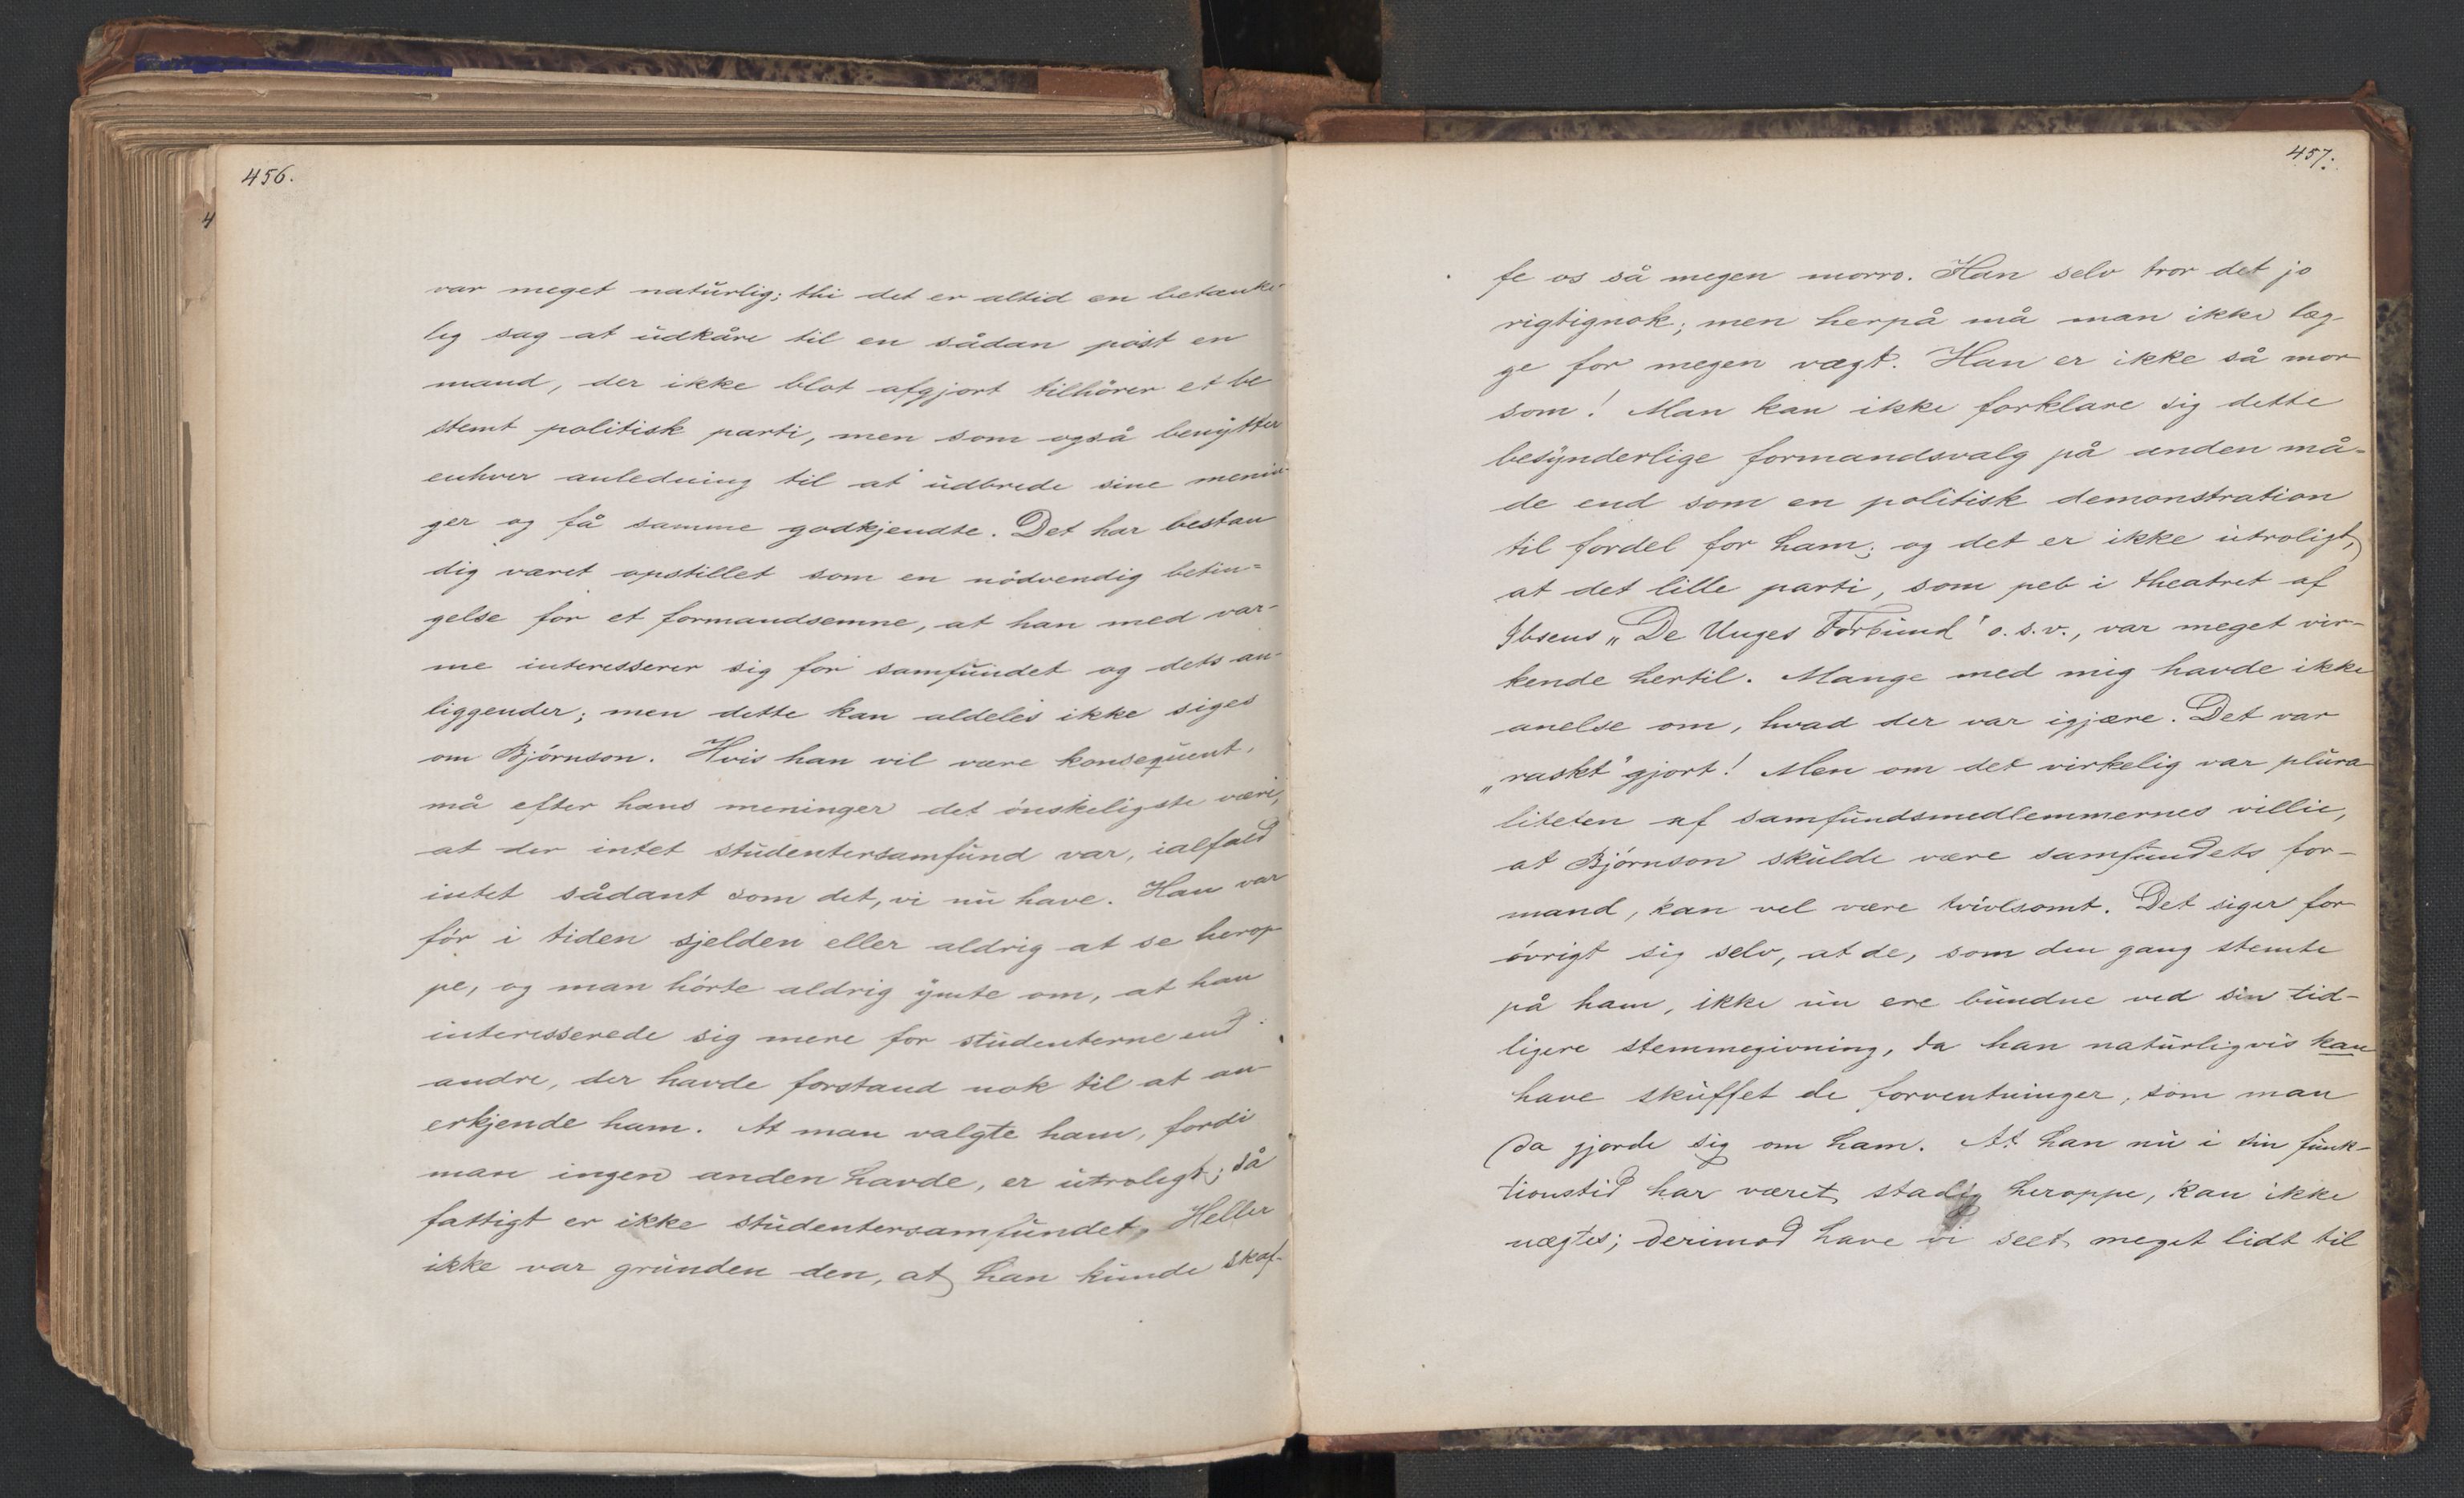 456.
var meget natürlig; thi det er altid en betænke-
lig sag at üdkåre til en sådan post en
mand, der ikke blot afgjort tilhörer et be
stemt politisk parti, men som også benytter
enhver anledning til at üdbrede sine menin-
ger og få samme godkjendte. Det har bestan
dig været opstillet som en nödvendig betin=
gelse for et formandsemne, at han med var-
me interesserer sig for samfündet og dets an-
liggender; men dette kan aldeles ikke siges
om Björnson. Hvis han vil være konseqüent,
må efter hans meninger det önskeligste være,
at der intet stüdentersamfünd var, ialfald
intet sådant som det, vi nü have. Han var
för i tiden sjelden eller aldrig at se herop
pe, og man hörte aldrig ymte om, at han
interesserede sig mere for stüdenterne end
andre, der havde forstand nok til at an-
erkjende ham. At man valgte ham, fordi
man ingen anden havde, er ütroligt; så
fattigt er ikke stüdentersamfündet. Heller
ikke var gründen den, at han künde skaf-
457.
fe os så megen morro. Han selv tror det jo
rigtignok; men herpå må man ikke læg-
ge for megen vægt. Han er ikke så mor
som! Man kan ikke forklare sig dette
besynderlige formandsvalg på anden må=
de end som en politisk demonstration
til fordel for ham; og det er ikke ütroligt,
at det lille parti, som peb i theatret af
Ibsens „De Unges Forbünd" o.s.v., var meget vir-
kende hertil. Mange med mig havde ikke
anelse om, hvad der var igjære. Det var
„raskt" gjort! Men om det virkelig var plüra
liteten af samfündsmedlemmernes villie,
at Björnson skülde være samfündets for-
mand, kan vel være tvivlsomt. Det siger for-
övrigt sig selv, at de, som den gang stemte
på ham, ikke nü ere bündne ved sin tid-
ligere stemmegivning, da han natürligvis kan
have sküffet de forventninger, som man
da gjorde sig om ham. At han nü i sin fünk-
tionstid har været stadig heroppe, kan ikke
nægtes; derimod have vi seet meget lidt til